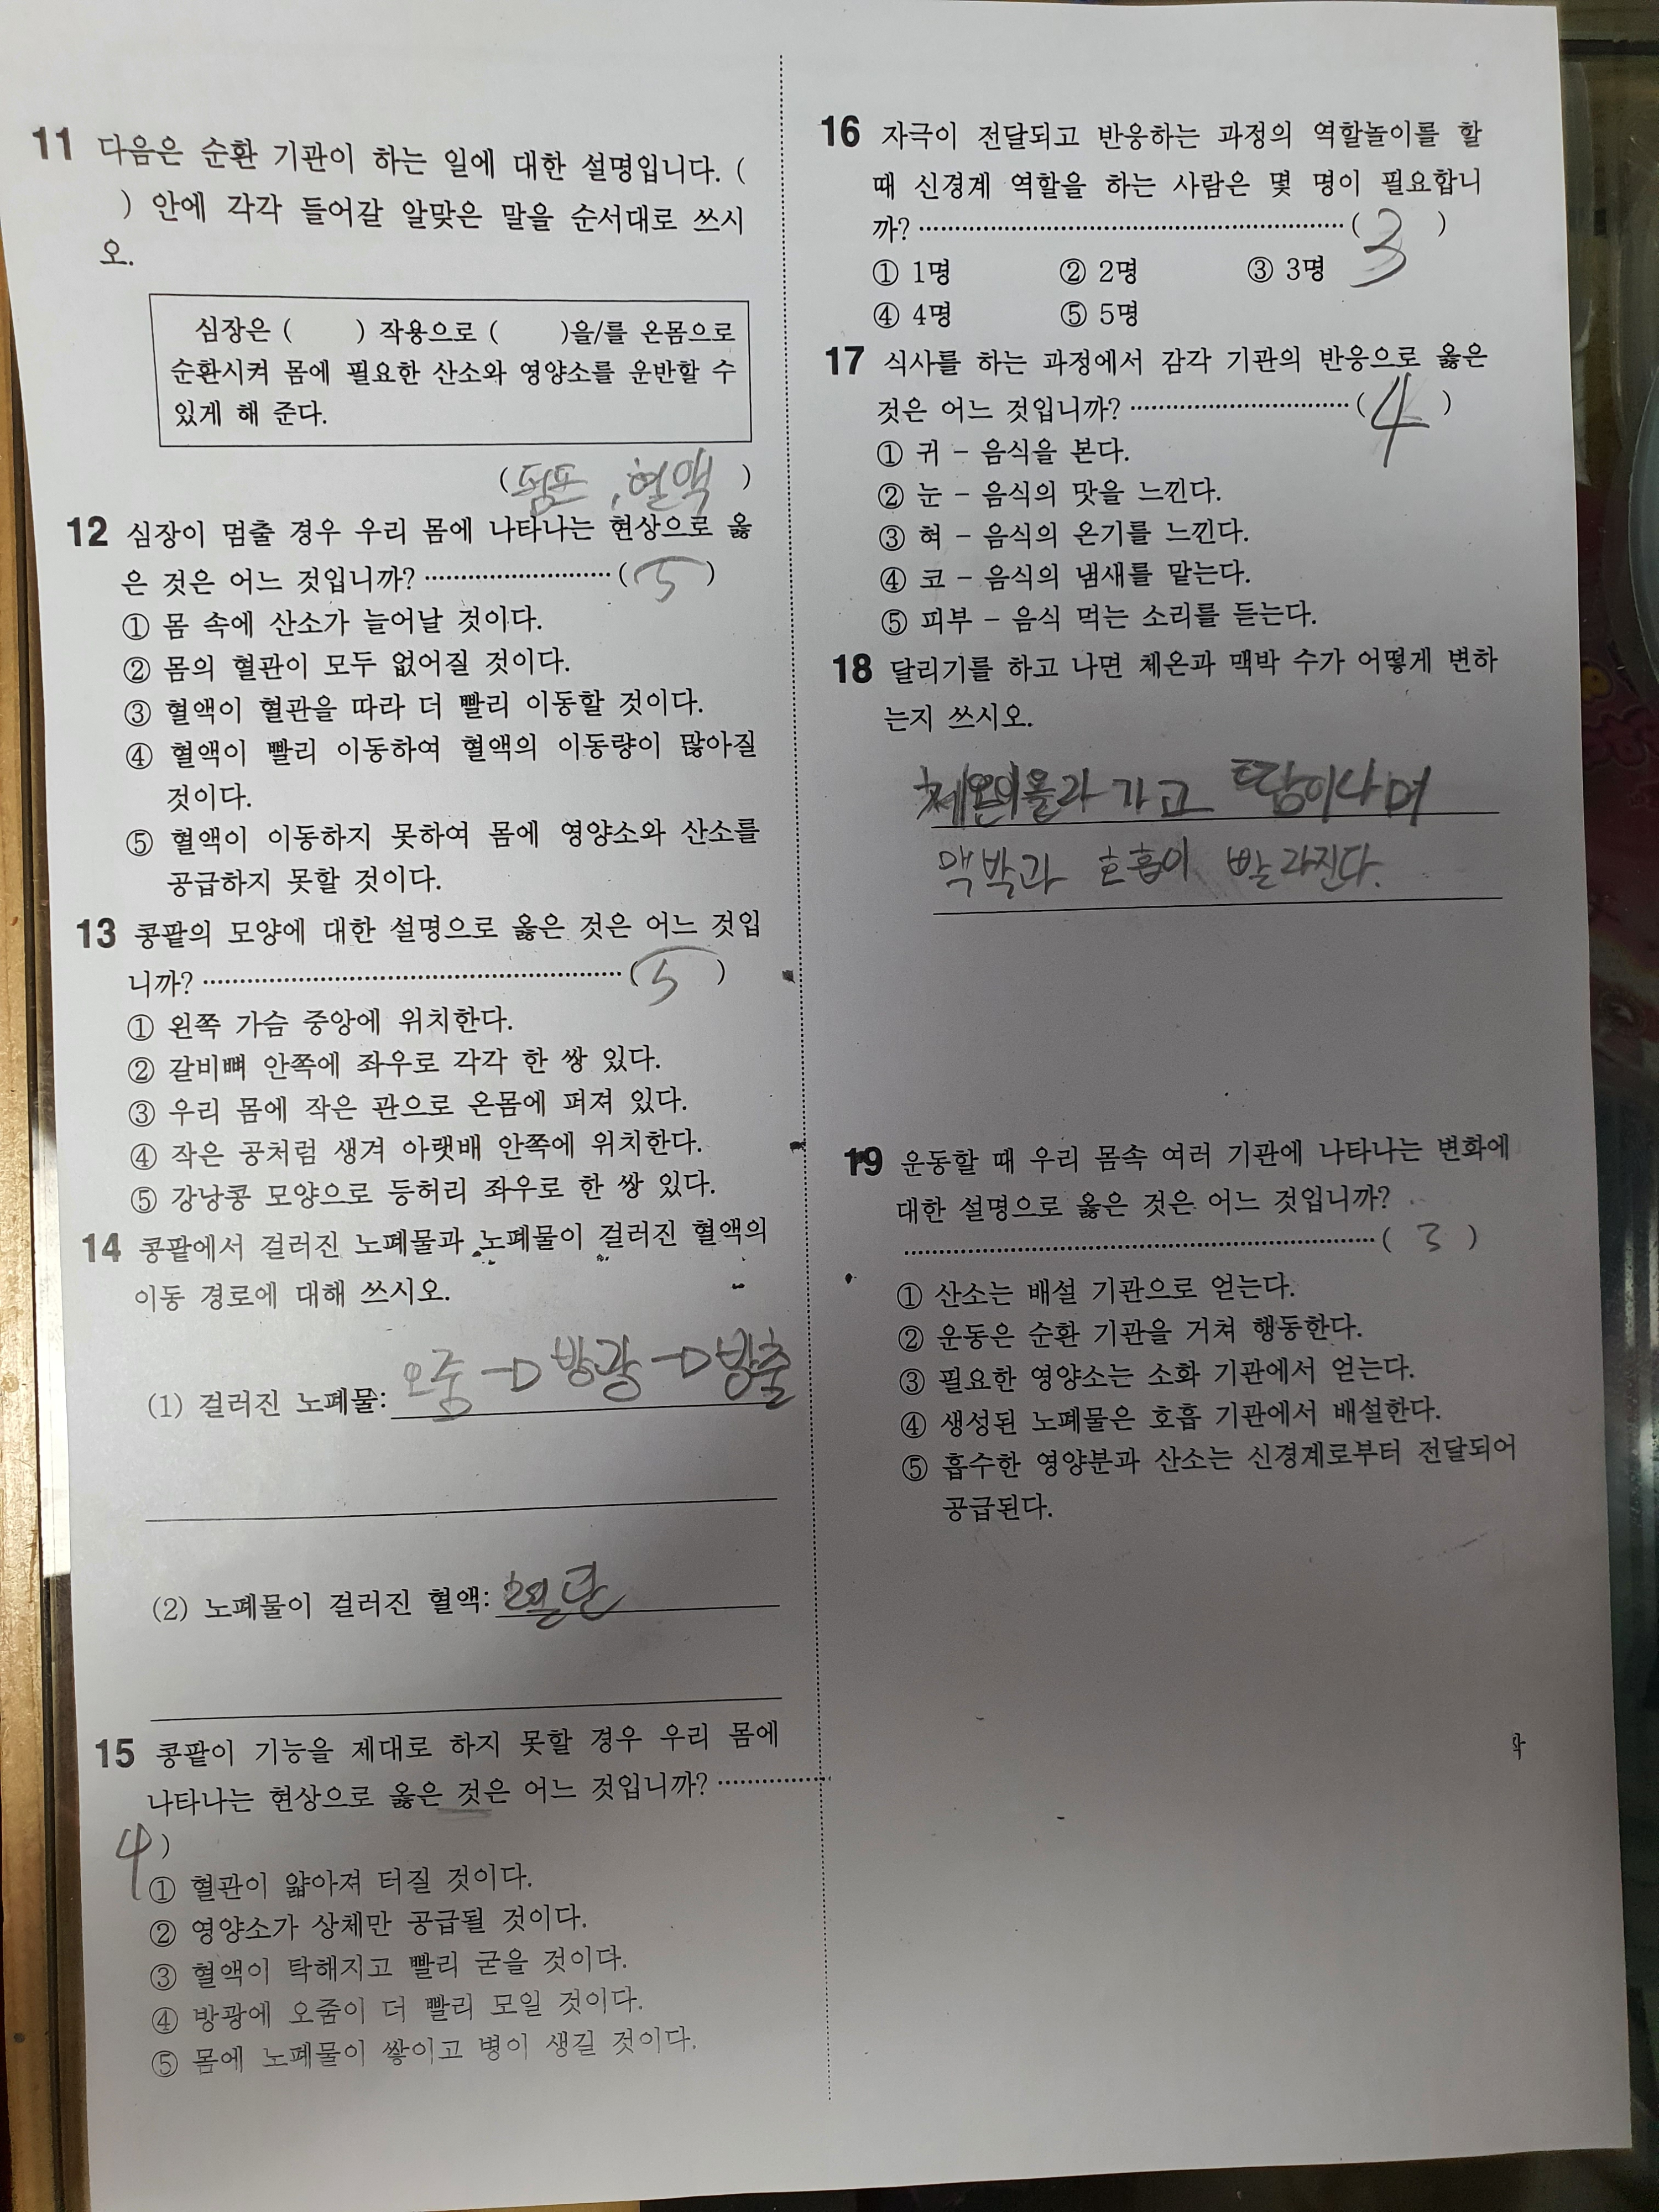 11 다음은 순환 기관이 하는 일에 대한 설명입니다. (
) 안에 각각 들어갈 알맞은 말을 순서대로 쓰시
오.
심장은 ( ) 작용으로 ( )을/를 온몸으로
순환시켜 몸에 필요한 산소와 영양소를 운반할 수
있게 해 준다.
( 펌프, 혈액 )
12 심장이 멈출 경우 우리 몸에 나타나는 현상으로 옳
은 것은 어느 것입니까? ··························· ( 5 )
① 몸 속에 산소가 늘어날 것이다.
② 몸의 혈관이 모두 없어질 것이다.
③ 혈액이 혈관을 따라 더 빨리 이동할 것이다.
④ 혈액이 빨리 이동하여 혈액의 이동량이 많아질
것이다.
⑤ 혈액이 이동하지 못하여 몸에 영양소와 산소를
공급하지 못할 것이다.
13 콩팥의 모양에 대한 설명으로 옳은 것은 어느 것입
니까? ··························· ( 5 )
① 왼쪽 가슴 중앙에 위치한다.
② 갈비뼈 안쪽에 좌우로 각각 한 쌍 있다.
③ 우리 몸에 작은 관으로 온몸에 퍼져 있다.
④ 작은 공처럼 생겨 아랫배 안쪽에 위치한다.
⑤ 강낭콩 모양으로 등허리 좌우로 한 쌍 있다.
14 콩팥에서 걸러진 노폐물과 노폐물이 걸러진 혈액의
이동 경로에 대해 쓰시오.
(1) 걸러진 노폐물: 오줌 → 방광 → 방출
(2) 노폐물이 걸러진 혈액:
15 콩팥이 기능을 제대로 하지 못할 경우 우리 몸에
나타나는 현상으로 옳은 것은 어느 것입니까? ···············
4 )
① 혈관이 얇아져 터질 것이다.
② 영양소가 상체만 공급될 것이다.
③ 혈액이 탁해지고 빨리 굳을 것이다.
④ 방광에 오줌이 더 빨리 모일 것이다.
⑤ 몸에 노폐물이 쌓이고 병이 생길 것이다.
16 자극이 전달되고 반응하는 과정의 역할놀이를 할
때 신경계 역할을 하는 사람은 몇 명이 필요합니
까? ··························· ( 3 )
① 1명 ② 2명 ③ 3명
④ 4명 ⑤ 5명
17 식사를 하는 과정에서 감각 기관의 반응으로 옳은
것은 어느 것입니까? ··························· ( 4 )
① 귀 - 음식을 본다.
② 눈 - 음식의 맛을 느낀다.
③ 혀 - 음식의 온기를 느낀다.
④ 코 - 음식의 냄새를 맡는다.
⑤ 피부 - 음식 먹는 소리를 듣는다.
18 달리기를 하고 나면 체온과 맥박 수가 어떻게 변하
는지 쓰시오.
체온이 올라 가고 땀이 나며
맥박과 호흡이 빨라진다.
19 운동할 때 우리 몸속 여러 기관에 나타나는 변화에
대한 설명으로 옳은 것은 어느 것입니까?
··························· ( 3 )
① 산소는 배설 기관으로 얻는다.
② 운동은 순환 기관을 거쳐 행동한다.
③ 필요한 영양소는 소화 기관에서 얻는다.
④ 생성된 노폐물은 호흡 기관에서 배설한다.
⑤ 흡수한 영양분과 산소는 신경계로부터 전달되어
공급된다.